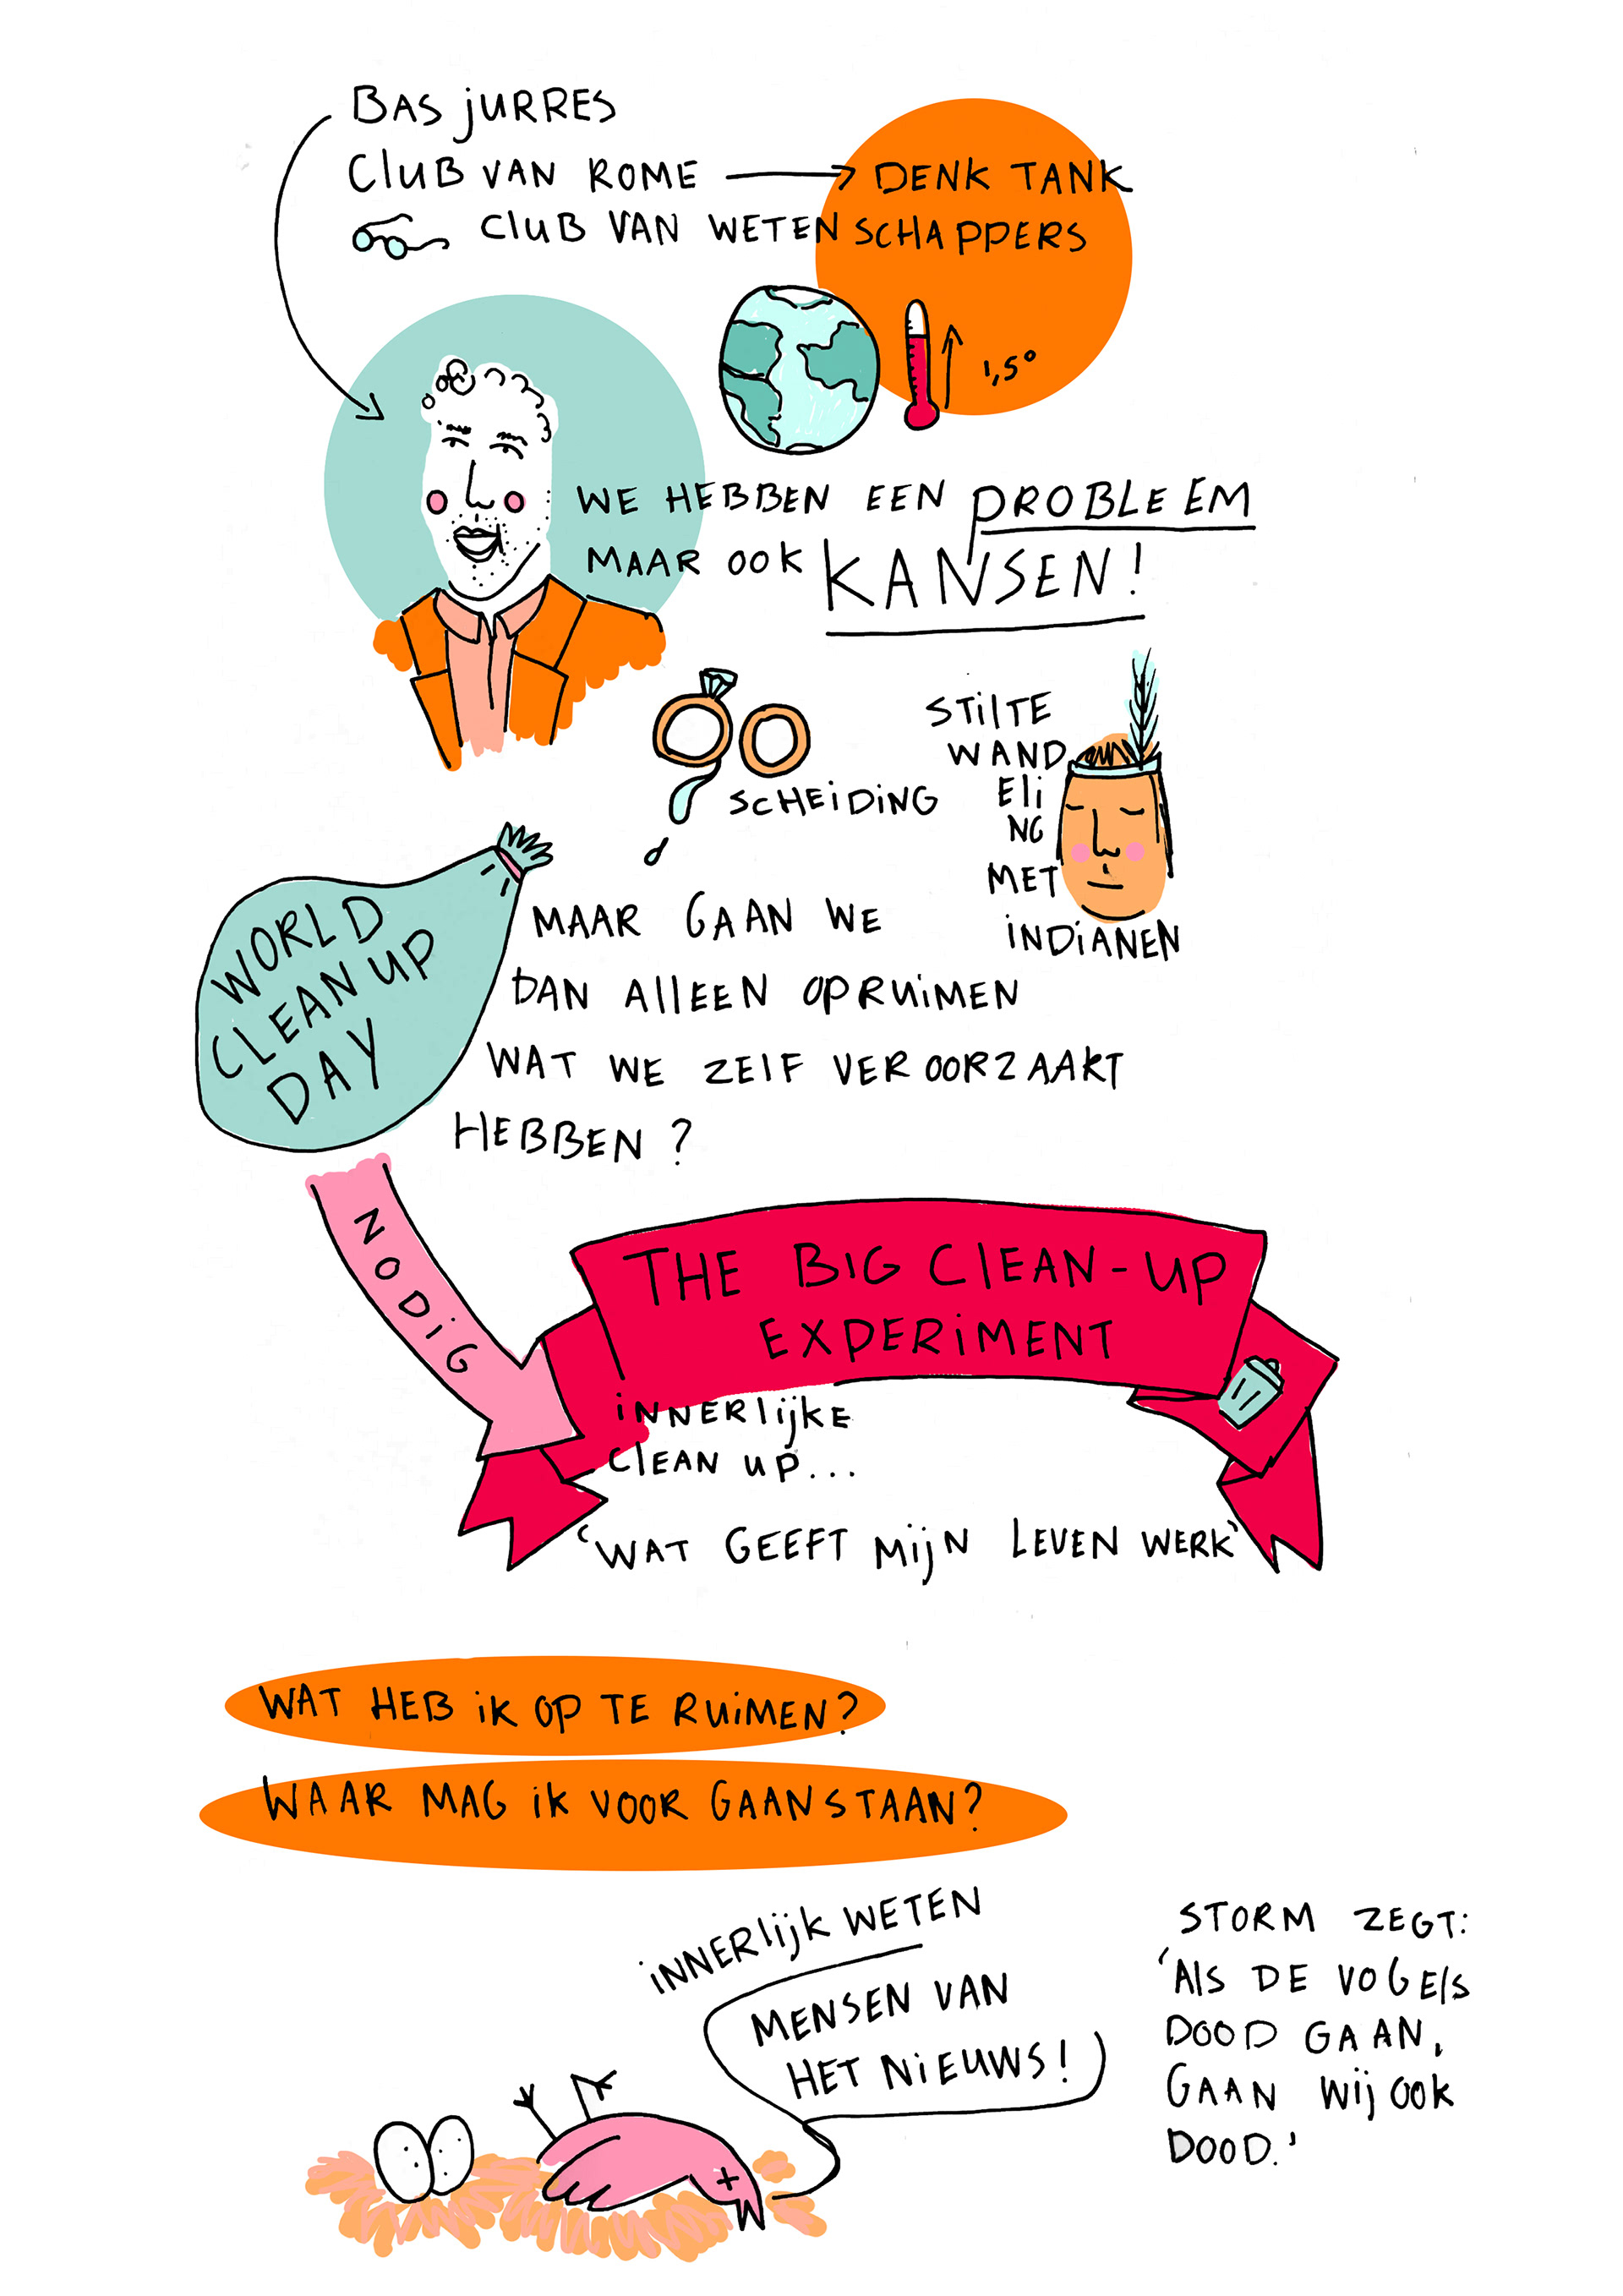 BAS JURRES
CLUB VAN ROME → DENK TANK
CLUB VAN WETENSCHAPPERS
1,5°
WE HEBBEN EEN PROBLEEM
MAAR OOK KANSEN!
SCHEIDING
STILTE
WAND
ELI
NG
MET
INDIANEN
WORLD
CLEAN UP
DAY
MAAR GAAN WE
DAN ALLEEN OPRUIMEN
WAT WE ZELF VEROORZAAKT
HEBBEN?
NODIG
THE BIG CLEAN-UP
EXPERIMENT
INNERLIJKE
CLEAN UP...
'WAT GEEFT MIJN LEVEN WERK'
WAT HEB IK OP TE RUIMEN?
WAAR MAG IK VOOR GAAN STAAN?
INNERLIJK WETEN
MENSEN VAN
HET NIEUWS!
STORM ZEGT:
'ALS DE VOGELS
DOOD GAAN,
GAAN WIJ OOK
DOOD.'